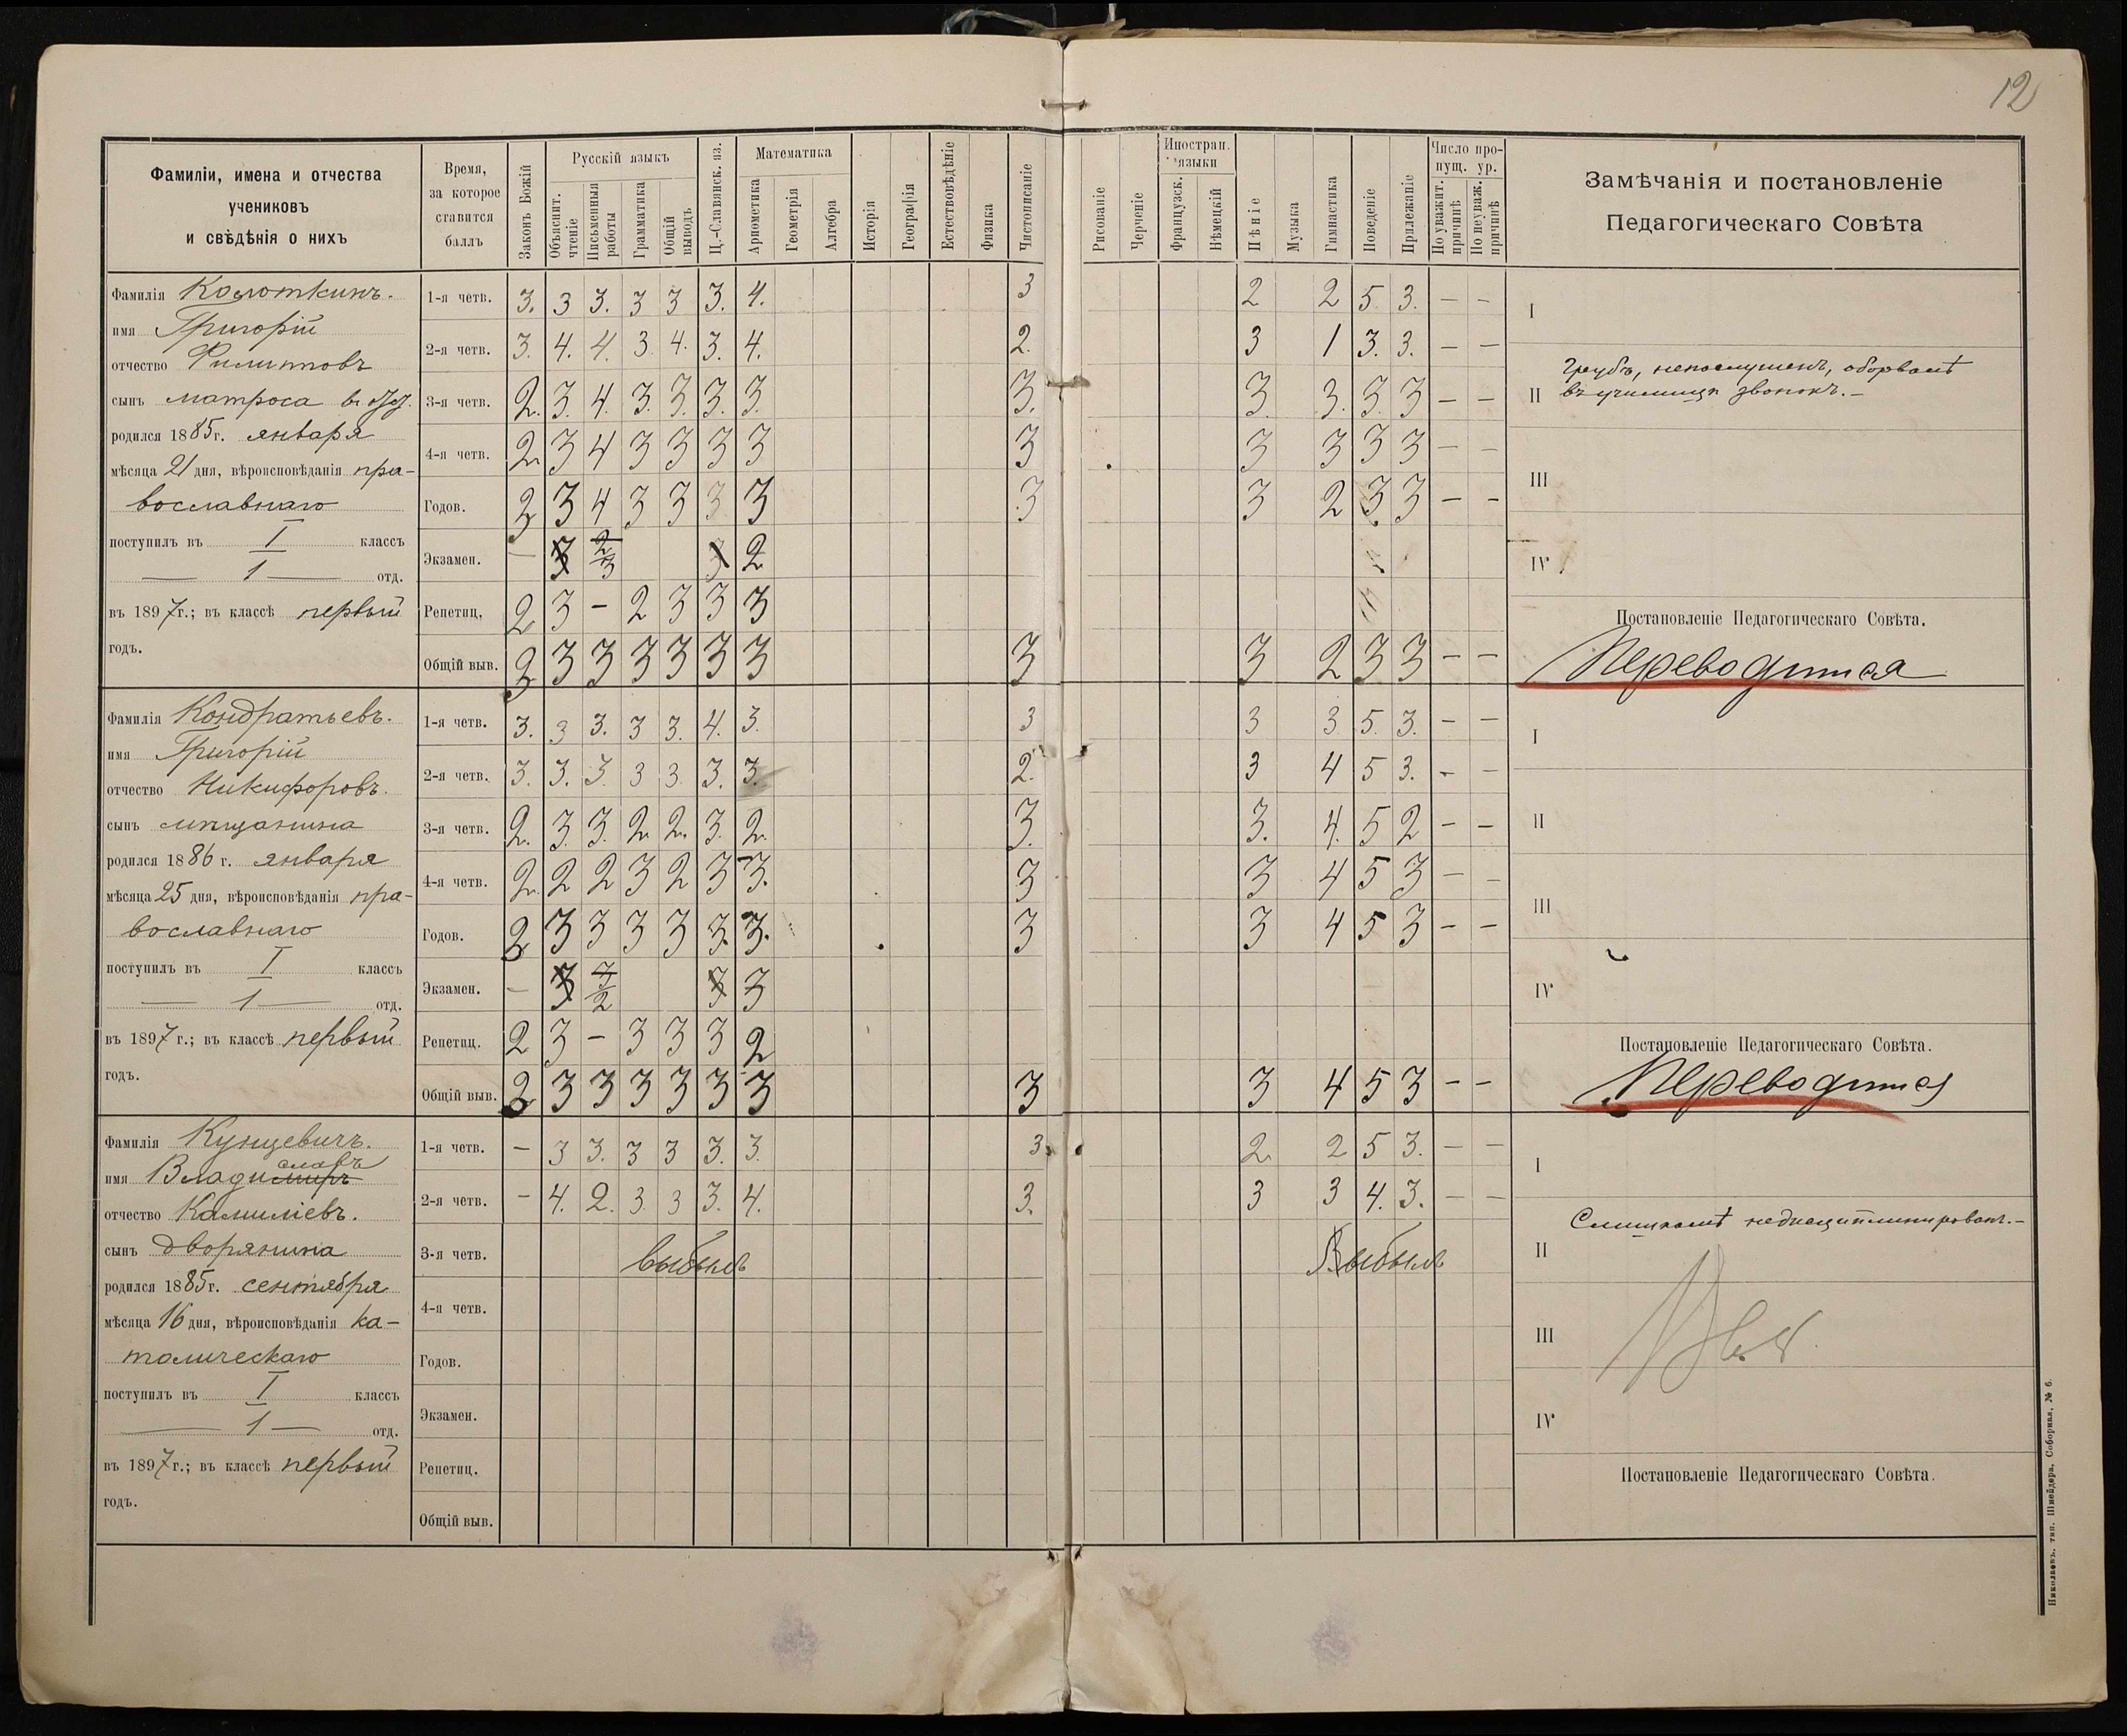 12
Фамиліи, имена и отчества
учениковъ
и свѣдѣнія о нихъ
Время,
за которое
ставится
баллъ
Законъ Божій
Русскій языкъ
Объяснит. чтеніе
Письменныя работы
Грамматика
Общій выводъ
Ц.-Славянск. яз.
Математика
Арифметика
Геометрія
Алгебра
Исторія
Географія
Естествовѣдѣніе
Физика
Чистописаніе
Рисованіе
Черченіе
Иностран. языки
Французск.
Нѣмецкій
Пѣніе
Музыка
Гимнастика
Поведеніе
Прилежаніе
Число пропущ. ур.
По уважит. причинѣ
По неуваж. причинѣ
Замѣчанія и постановленіе
Педагогическаго Совѣта
Фамилія Колоткинъ.
имя Григорій
отчество Филипповъ
сынъ матроса
родился 1885 г. января
мѣсяца 21 дня, вѣроисповѣданія пра-
вославнаго
поступилъ въ I классъ
— 1 — отд.
въ 1897 г.; въ классѣ первый
годъ.
1-я четв. 3. 3 3. 3 3 3. 4. 3 2 2 5 3. — —
2-я четв. 3. 4. 4. 3 4. 3. 4. 2. 3 1 3. 3. — —
3-я четв. 2. 3. 4. 3. 3. 3. 3. 3. 3. 3. 3. 3 — —
4-я четв. 2. 3 4 3 3 3 3 3 3 3 3 3 — —
Годов. 2 3 4 3 3 3 3 3 3 2 3 3 — —
Экзамен. — 3 2/3 3 2
Репетиц. 2 3 — 2 3 3 3
Общій выв. 2 3 3 3 3 3 3 3 3 2 3 3 — —
I
II Грубъ, непослушенъ, оборвалъ
въ училищѣ звонокъ.—
III
IV
Постановленіе Педагогическаго Совѣта.
Переводится
Фамилія Кондратьевъ.
имя Григорій
отчество Никифоровъ.
сынъ мѣщанина
родился 1886 г. января
мѣсяца 25 дня, вѣроисповѣданія пра-
вославнаго
поступилъ въ I классъ
— 1 — отд.
въ 1897 г.; въ классѣ первый
годъ.
1-я четв. 3. 3 3. 3 3. 4. 3. 3 3 3 5. 3. — —
2-я четв. 3. 3. 3. 3 3. 3. 3. 2. 3 4 5 3. — —
3-я четв. 2. 3. 3. 2. 2. 3. 2. 3. 3. 4. 5 2 — —
4-я четв. 2. 2 2 3 2 3 3. 3 3 4 5 3 — —
Годов. 2 3 3 3 3 3. 3. 3 3 4 5 3 — —
Экзамен. — 3 3/2 3 3
Репетиц. 2 3 — 3 3 3 2
Общій выв. 2 3 3 3 3 3 3 3 3 4 5 3 — —
I
II
III
IV
Постановленіе Педагогическаго Совѣта.
Переводится
Фамилія Кунцевичъ.
славъ
имя Владимиръ
отчество Камиліевъ.
сынъ дворянина
родился 1885 г. сентября
мѣсяца 16 дня, вѣроисповѣданія ка-
толическаго
поступилъ въ I классъ
— 1 — отд.
въ 1897 г.; въ классѣ первый
годъ.
1-я четв. — 3 3. 3 3 3. 3. 3. 2. 2 5 3. — —
2-я четв. — 4. 2. 3. 3 3. 4. 3. 3 3 4. 3. — —
3-я четв. выбылъ Выбылъ
4-я четв.
Годов.
Экзамен.
Репетиц.
Общій выв.
I
II Слишкомъ недисциплинированъ.—
III
IV
Постановленіе Педагогическаго Совѣта.
Николаевъ, тип. Шнейдера, Соборная, № 6.